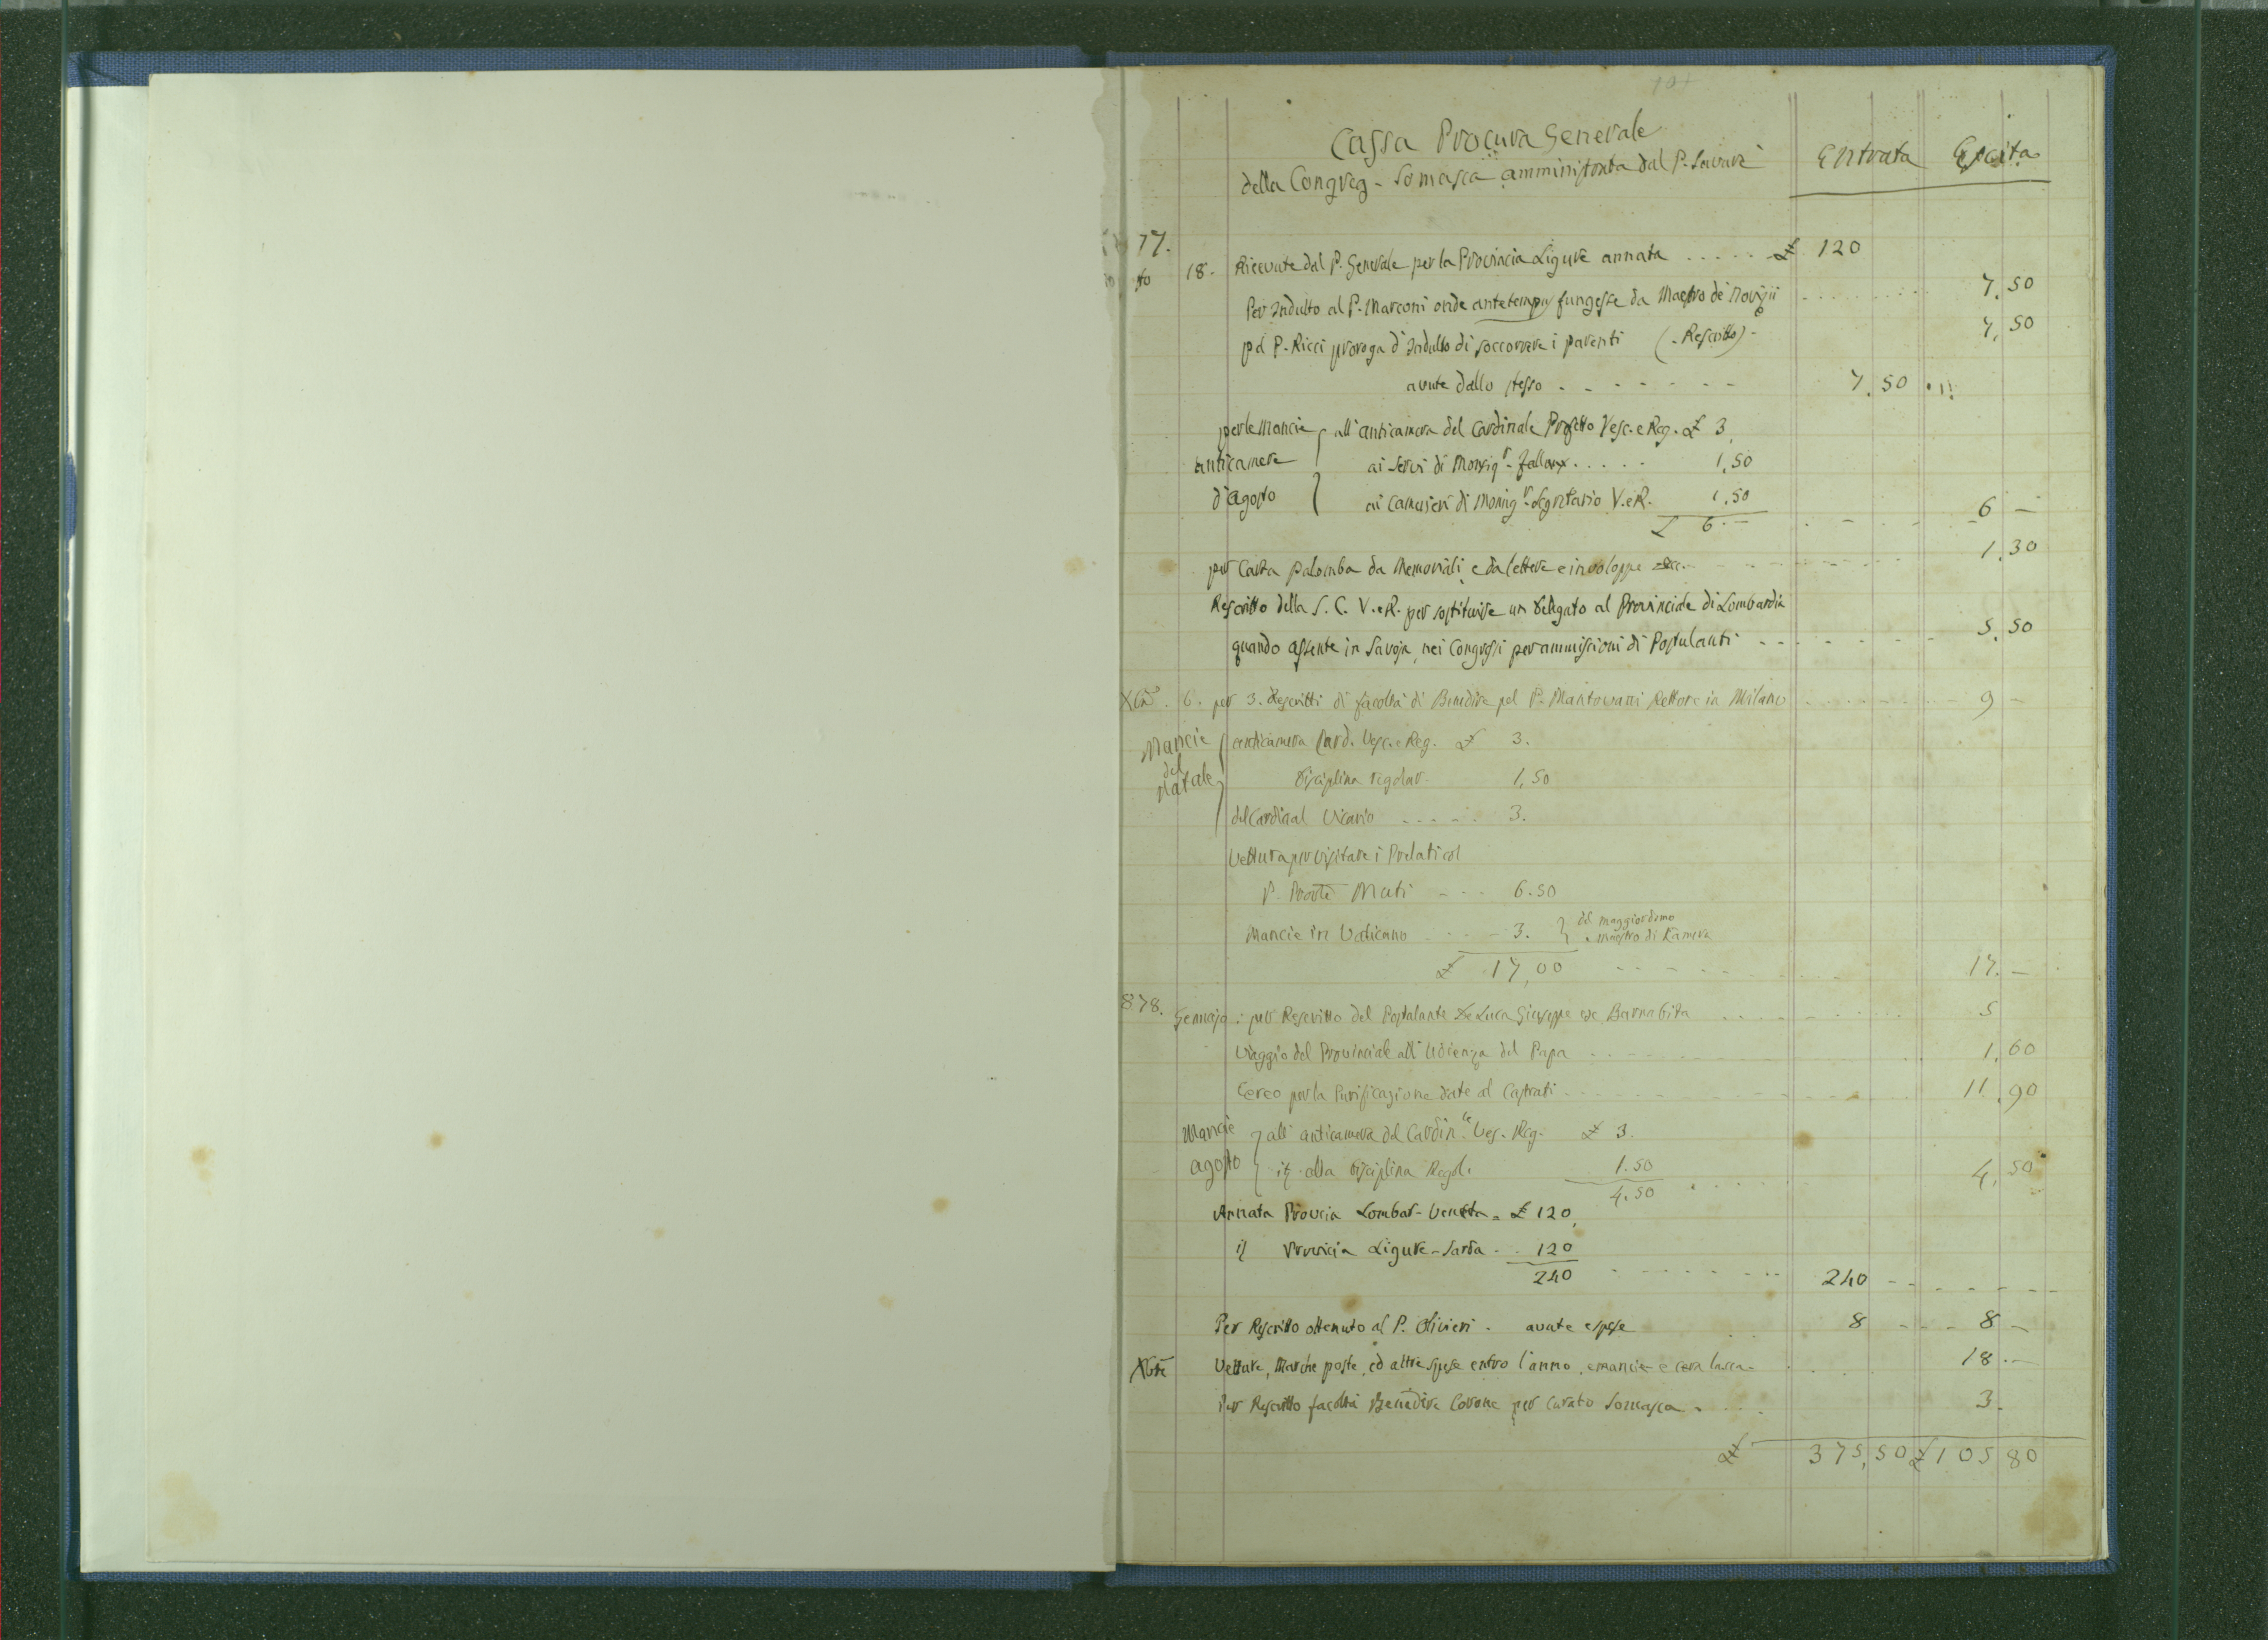 Cassa Procura Generale
della Congreg - Somasca amministrata dal P. Savarè Entrata Escita
77.
to 18. Ricevute dal P. Generale per la Provincia Ligure annata ..... £ 120
Per Indulto al P. Marconi onde antetempus fungesse da Maestro de' Novizii ........ 7,50
pel P. Ricci proroga d'Indulto di soccorrere i parenti (. Rescritto) - 7,50
avute dallo stesso . - - - - - - 7.50
per le Mancie all'anticamera del Cardinale Prefetto Vesc. e Reg. £ 3,
anticamere ai servi di Monsigr. ..... 1,50
d'agosto ai Camerieri di Monsigr. Segretario V. e R. 1.50
£ 6.— . - . - 6 —
per Carta palomba da Memoriali e da lettere e inviloppe ecc. - - - - 1,30
Rescritto della S. C. V. e R. per sostituire un delegato al Provinciale di Lombardia
quando assente in Savoja, nei Congressi per ammissioni di Postulanti - - - - - 5,50
6. per 3. Rescritti di facoltà di Benedire pel P. Mantovani Rettore in Milano ....... 9 -
Mancie anticamera Card. Vesc. e Reg. £ 3.
del disciplina regolar. 1,50
Natale del Cardinal Vicario ..... 3.
Vettura per visitare i Prelati col
P. Muti - - - 6.50
Mancie in Vaticano .... 3. del maggiordomo
e maestro di Kamera
£ 17,00 - - - - - 17. —
878. Gennajo : per Rescritto del Postulante De Luca Giuseppe ex Barnabita ......... 5
Viaggio del Provinciale all'Udienza del Papa ...... 1,60
Cereo per la Purificazione date al Castrati ........ 11,90
Mancie all'anticamera del Cardin.le Ves. Reg. £ 3.
agosto id. alla disciplina Regol. 1.50 4,50
4.50 . . . .
Annata Provcia Lombar - Veneta = £ 120,
id Provincia Ligure - Sarda . . 120
240 - - - - - 240 - - - - - -
Per Rescritto ottenuto al P. Olivieri . avute e spese 8 - - - 8 —
Vetture, Marche poste, ed altre spese entro l'anno, e mancie e cera 18.—
Per Rescritto facoltà Benedire Corone per Curato Somasca . ... 3.
£ 375,50 £ 105 80